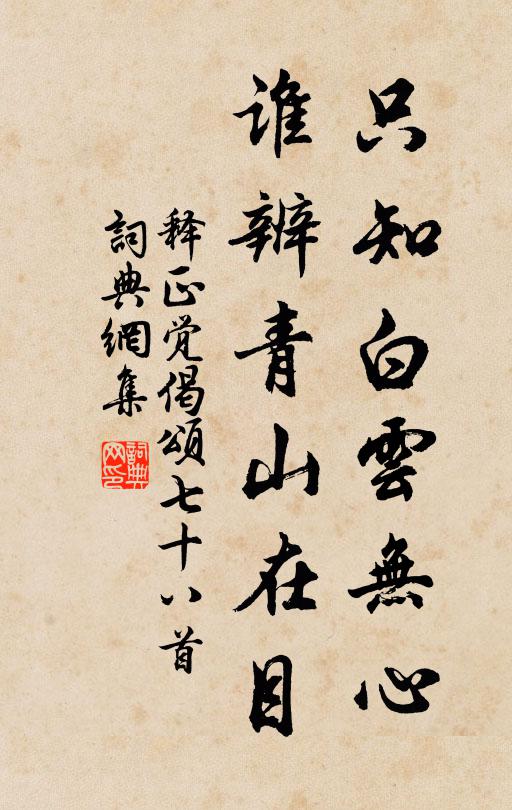 只知白雲無心
谁辨青山在目
释正觉偈頌七十八首
詞典網集
詞典網印